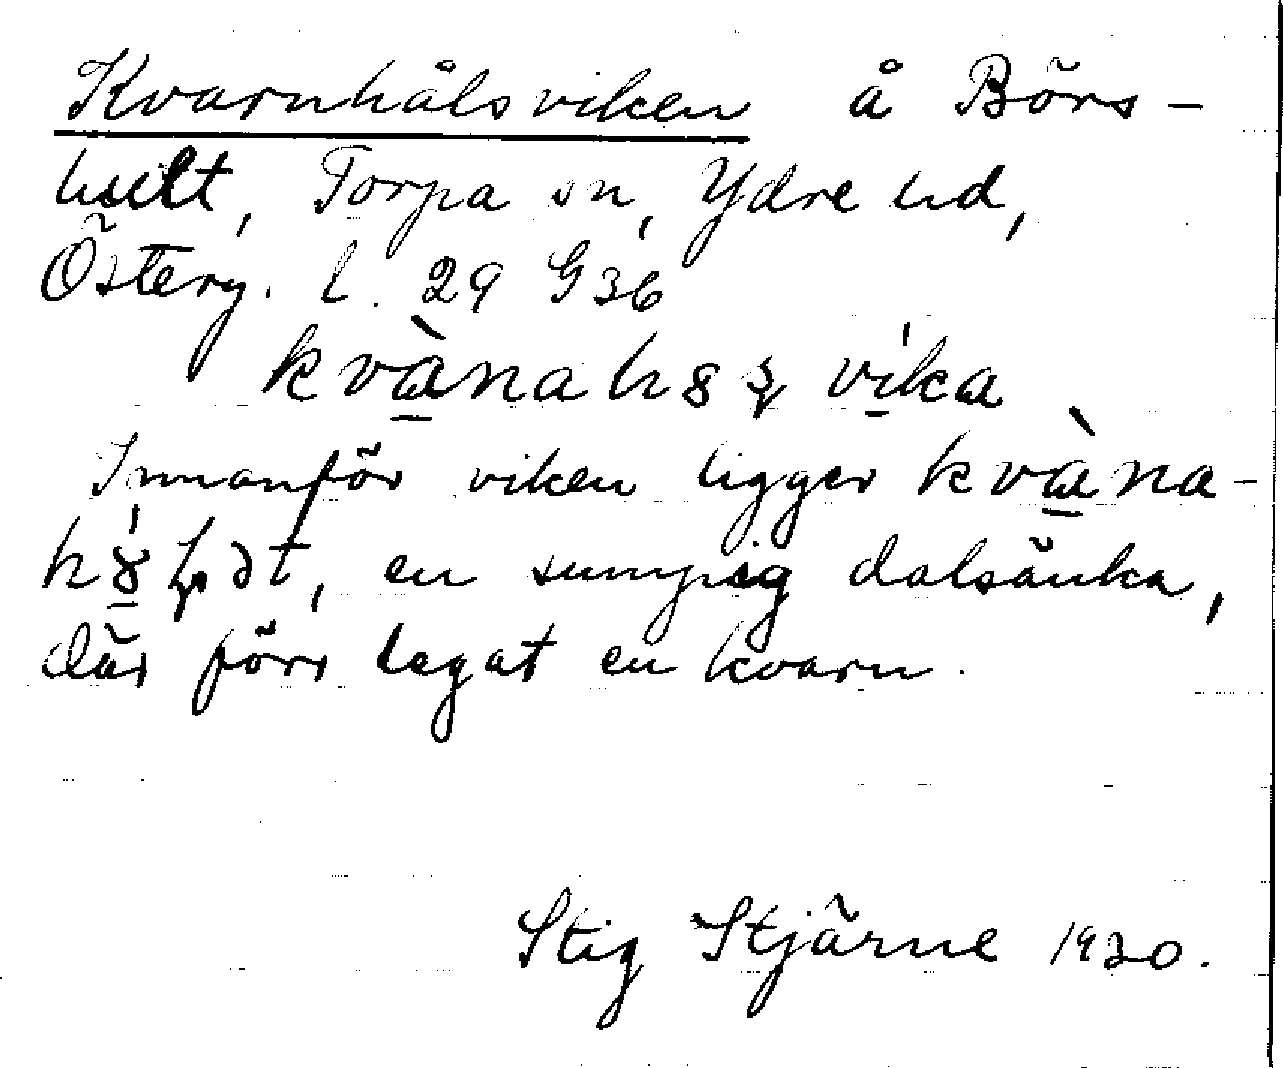 Kvarnhålsviken å Börs-
hult, Torpa sn, Ydre hd,
Österg. l. 29 G 36
kvànah8s víka
Innanför viken ligger kvàna-
en sumpig dalsänka,
där förr legat en kvarn.
Stig Stjärne 1930.